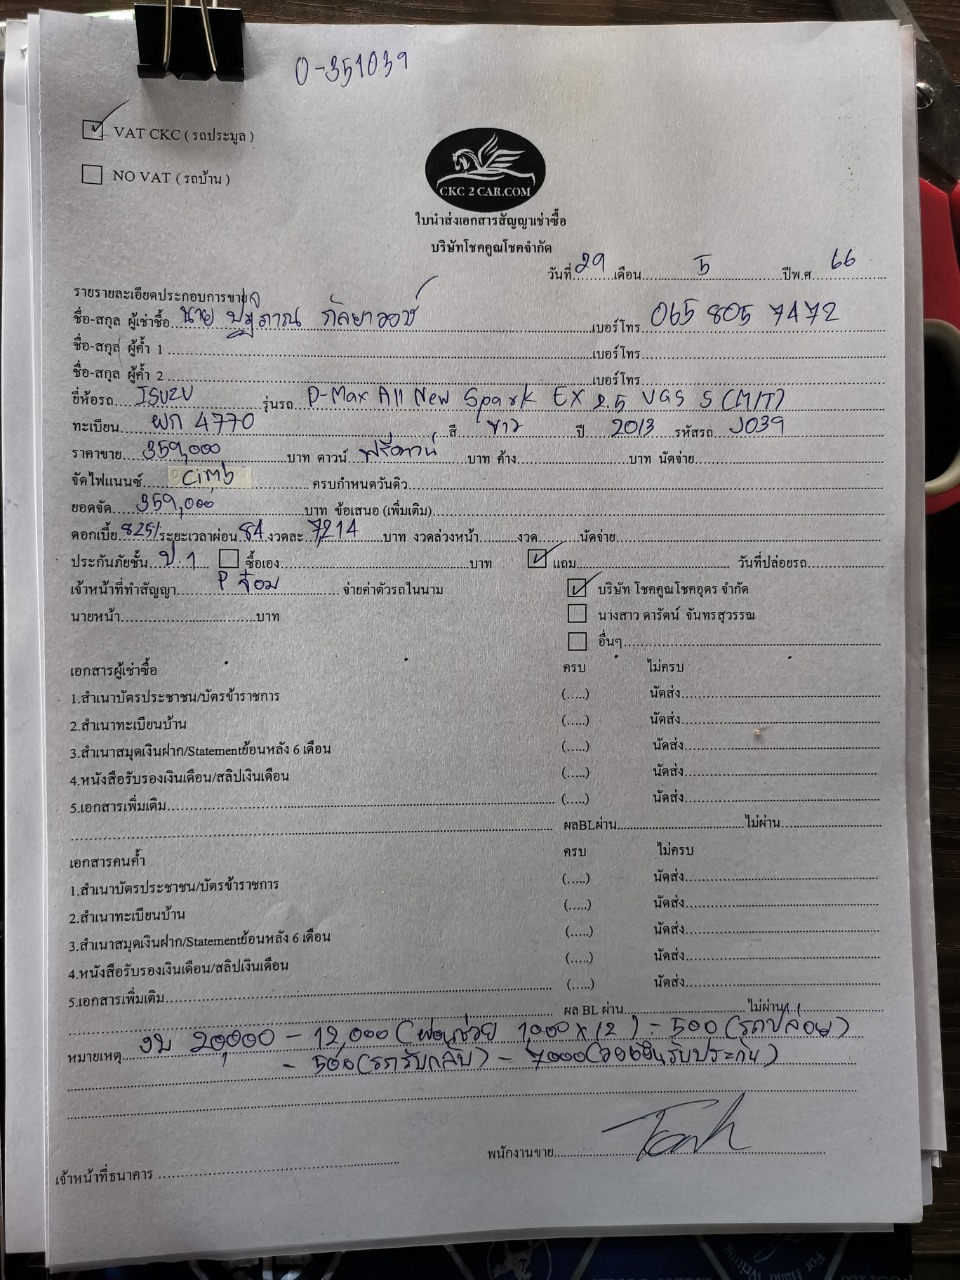 0-351039
VAT CKC ( รถประมูล )
NO VAT ( รถบ้าน )
CKC 2 CAR.COM
ใบนำส่งเอกสารสัญญาเช่าซื้อ
บริษัทโชคคูณโชคจำกัด
วันที่ 29 เดือน 5 ปีพ.ศ 66
รายรายละเอียดประกอบการขาย
ชื่อ-สกุล ผู้เช่าซื้อ นาย เบอร์โทร. 065 805 7472
ชื่อ-สกุล ผู้ค้ำ 1 เบอร์โทร
ชื่อ-สกุล ผู้ค้ำ 2 เบอร์โทร
ยี่ห้อรถ ISUZU รุ่นรถ D-Max All New Spark EX 2.5 VGS S (M/T)
ทะเบียน ผก 4770 สี ขาว ปี 2013 รหัสรถ J039
ราคาขาย 359,000 บาท ดาวน์ ฟรีดาวน์ บาท ค้าง บาท นัดจ่าย
จัดไฟแนนซ์ Cimb ครบกำหนดวันดิว
ยอดจัด 359,000 บาท ข้อเสนอ (เพิ่มเติม)
ดอกเบี้ย 825/ ระยะเวลาผ่อน 84 งวดละ 7214 บาท งวดล่วงหน้า งวด นัดจ่าย
ประกันภัยชั้น ป.1 ซื้อเอง บาท แถม วันที่ปล่อยรถ
เจ้าหน้าที่ทำสัญญา P จ๋อม จ่ายค่าตัวรถในนาม บริษัท โชคคูณโชคอุดร จำกัด
นายหน้า บาท นางสาว ดารัตน์ จันทรสุวรรณ
อื่นๆ
เอกสารผู้เช่าซื้อ ครบ ไม่ครบ
1.สำเนาบัตรประชาชน/บัตรข้าราชการ (.....) นัดส่ง
2.สำเนาทะเบียนบ้าน (.....) นัดส่ง
3.สำเนาสมุดเงินฝาก/Statementย้อนหลัง 6 เดือน (.....) นัดส่ง
4.หนังสือรับรองเงินเดือน/สลิปเงินเดือน (.....) นัดส่ง
5.เอกสารเพิ่มเติม (.....) นัดส่ง
ผลBLผ่าน ไม่ผ่าน
เอกสารคนค้ำ ครบ ไม่ครบ
1.สำเนาบัตรประชาชน/บัตรข้าราชการ (.....) นัดส่ง
2.สำเนาทะเบียนบ้าน (.....) นัดส่ง
3.สำเนาสมุดเงินฝาก/Statementย้อนหลัง 6 เดือน (.....) นัดส่ง
4.หนังสือรับรองเงินเดือน/สลิปเงินเดือน (.....) นัดส่ง
5.เอกสารเพิ่มเติม (.....) นัดส่ง
ผล BL ผ่าน ไม่ผ่าน
หมายเหตุ งบ 20,000 - 12,000 (ผ่อนช่วย 1,000 x 12) - 500 (รถปล่อย)
- 500 (รถรับกลับ) - 7000
พนักงานขาย
เจ้าหน้าที่ธนาคาร